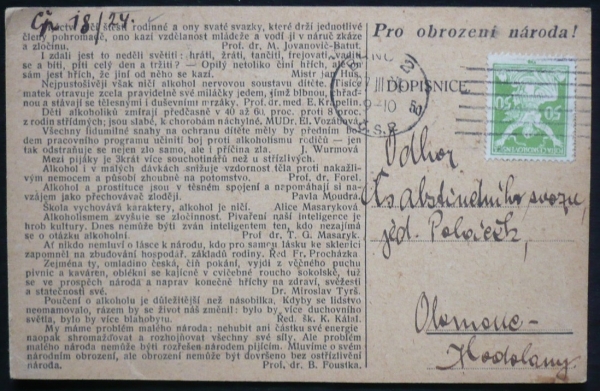 Čp. 18/24.
štěstí rodinné a ony svaté svazky, které drží jednotlivé
členy pohromadě, ono kazí vzdělanost mládeže a vodí jí v náruč zkáze
a zločinu. Prof. dr. M. Jovanovič-Batut.
I zdali jest to neděli světiti: hráti, žráti, tančiti, frejovati, vaditi
se a bíti, píti celý den a tržiti? — Opilý netoliko činí hřích, ale
sám jest hřích, že jiné od něho se kazí. Mistr Jan Hus.
Nejpustošivěji však ničí alkohol nervovou soustavu dítěte. Tisíce
matek otravuje zcela pravidelně své miláčky jedem, jímž blbnou, chřad-
nou a stávají se tělesnými i duševními mrzáky. Prof. dr. med. E. Kräpelin.
Dětí alkoholiků zmírají předčasně v 40 až 60. proc. proti 8 proc.
z rodin střídmých; jsou slabé, k chorobám náchylé. MUDr. El. Vozábová.
Všechny lidumilné snahy na ochranu dítěte měly by předním bo-
dem pracovního programu učiniti boj proti alkoholismu rodičů — jen
tak odstraňuje se nejen zlo samo, ale i příčina zla. J. Wurmová
Mezi pijáky je 3krát více souchotinářů než u střízlivých.
Alkohol i v malých dávkách snižuje vzdornost těla proti nakažli-
vým nemocem a působí zhoubně na potomstvo. Prof. dr. Forel.
Alkohol a prostituce jsou v těsném spojení a vzpomáhají si na-
vzájem jako přechovávač zloději. Pavla Moudrá.
Škola vychovává karaktery, alkohol je ničí. Alice Masaryková
Alkoholismem zvyšuje se zločinnost. Pivaření naší inteligence je
hrob kultury. Dnes nemůže býti zván inteligentem ten, kdo nezajímá
se o otázku alkoholní. Prof dr. T. G. Masaryk.
Ať nikdo nemluví o lásce k národu, kdo pro samou lásku ke sklenici
zapomněl na zbudování hospodář. základů rodiny. Red Fr. Procházka
Zejména ty, omladino česká, čiň pokání, vyjdi z věčného puchu
pivnic a kaváren, obléknì se kajícně v cvičebné roucho sokolské, tuž
se ve prospěch národa a naprav konečně hříchy na zdraví, svěžesti
a statečnosti své. Dr. Miroslav Tyrš.
Poučení o alkoholu je důležitější než násobilka. Kdyby se lidstvo
neomamovalo, rázem by se život náš změnil: bylo by více duchovního
světla, bylo by více blahobytu. Red. šk. K. Kálal.
My máme problém malého národa: nehubit ani částku své energie
naopak shromažďovat a rozhojňovat všechny své síly. Ale problém
malého národa nemůže býti rozřešen národem pijícím. Mluvíme o svém
národním obrození, ale obrození nemůže býti dovršeno bez ostřízlivění
národa. Prof. dr. B. Foustka.
Pro obrození národa!
DOPISNICE
9-10
Č.S.R.
50
50
Odbor
Čs abstinentního svazu,
Olomouc-
Hodolany